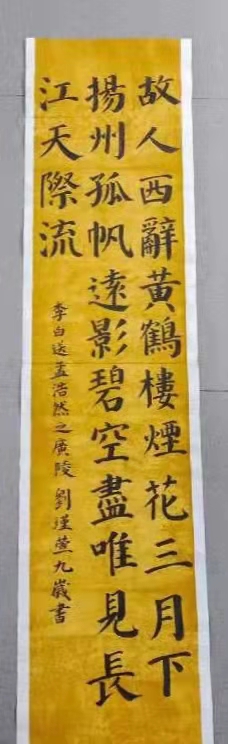 故人西辭黃鶴樓煙花三月下
揚州孤帆遠影碧空盡唯見長
江天際流
李白送孟浩然之廣陵 劉瑾萱九歲書